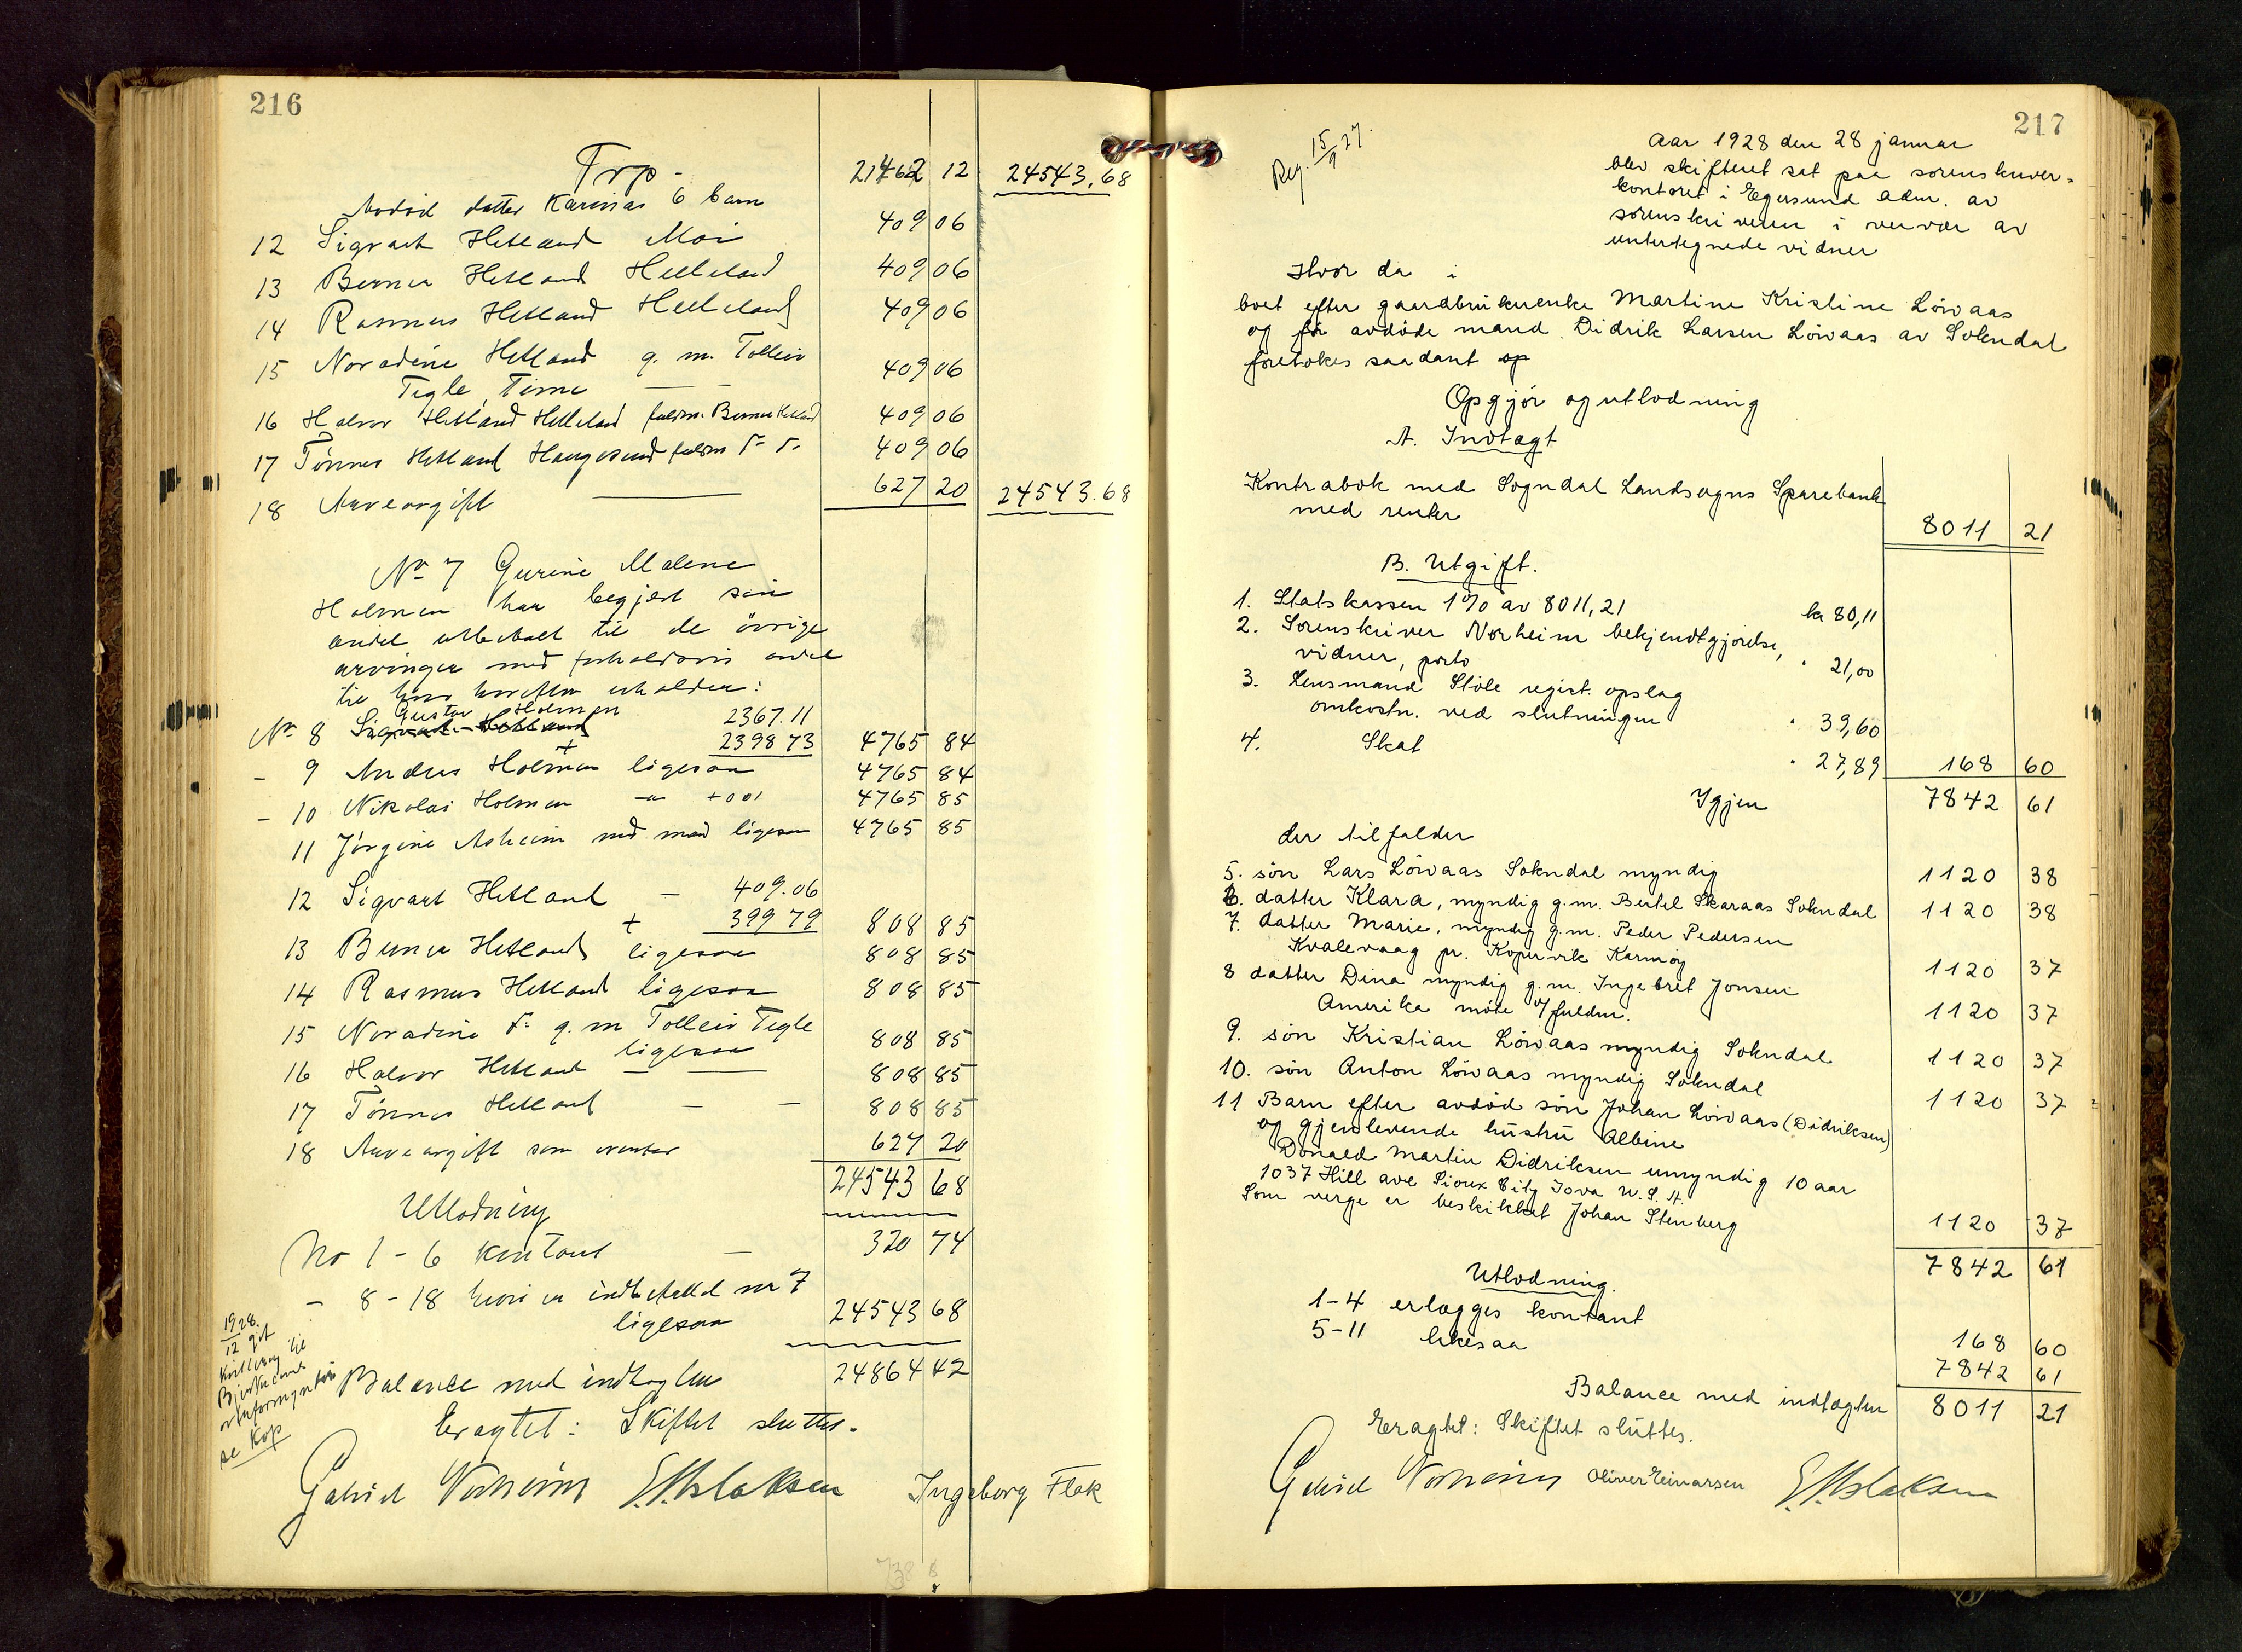 216
Trp - 21462 12 24543.68
Avdød datter Karinas 6 barn
12 Sigvart Hetland Moi 409 06
13 Berner Hetland Helleland 409 06
14 Rasmus Hetland Helleland 409 06
15 Noradine Hetland g. m. Tolleiv
Tegle, Time 409 06
16 Halvor Hetland Helleland fuldm. Berner Hetland 409 06
17 Tønnes Hetland Haugesund fuldm 409 06
18 Arveavgift 627 20 24543.68
No 7 Gurine Malene
Holmen har begjert sin
andel utbetalt til de övrige
arvinger med forholdsvis andel
til hver herefter erholder:
Gustav Holmen
No 8 Sigvart Hetland 2367.11
+ 2398 73 4765 84
- 9 Andres Holmen ligesaa 4765 84
- 10 Nikolai Holmen - " - + 001 4765 85
11 Jörgine Asheim med mand ligesaa 4765 85
12 Sigvart Hetland - 409.06
+ 399 79 808 85
13 Berner Hetland ligesaa 808 85
14 Rasmus Hetland ligesaa 808 85
15 Noradine g. m Tolleiv Tegle
ligesaa 808 85
16 Halvor Hetland 808 85
17 Tönnes Hetland - - 808 85
18 Arveavgift som ovenfor 627 20
24543 68
Utlodning
No 1 - 6 kontant - 320 74
- 8 - 18 indbefattet nr 7
ligesaa 24543 68
Balance med indtægten 24864 42
Eragtet: Skiftet sluttes.
1928.
12 git
til
se Kop
Gabriel Norheim E. Aslaksen Ingeborg Fløk
217
Reg. 15/9 27.
Aar 1928 den 28 januar
blev skifteret sat paa sorenskriver-
kontoret i Egersund adm. av
sorenskriveren i nervær av
undertegnede vidner
Hvor da i
boet efter gaardbrukerenke Martine Kristine Lövaas
og før avdöde mand Didrik Larsen Lövaas av Sokndal
foretokes saadant op
Opgjör og utlodning
A. Indtægt
Kontrabok med Sogndal Landsogns Sparebank
med renter 8011 21
B. Utgift.
1. Statskassen 1% av 8011,21 kr 80,11
2. Sorenskriver Norheim bekjendtgjørelse,
vidner, porto " 21,00
3. Lensmand Stöle regist. opslag
omkostn. ved slutningen " 39,60
4. Skat " 27,89 168 60
Igjen 7842 61
der tilfalder
5. sön Lars Lövaas Sokndal myndig 1120 38
6. datter Klara, myndig g.m. Bertel Skaraas Sokndal 1120 38
7. datter Marie, myndig g.m. Peder Pedersen
Kvalevaag pr. Kopervik Karmøy 1120 37
8 datter Dina myndig g.m. Ingebret Jonsen
Amerika møte v/fuldm. 1120 37
9. sön Kristian Lövaas myndig Sokndal 1120 37
10. sön Anton Lövaas myndig Sokndal 1120 37
11 Barn efter avdöd sön Johan Lövaas (Didriksen)
og gjenlevende hustru Albine
Donald Martin Didriksen umyndig 10 aar
1037 Hill ave Sioux City Iova U.S.A.
Som verge er beskikket Johan Stenberg 1120 37
7842 61
Utlodning.
1-4 erlægges kontant 168 60
5-11 likesaa 7842 61
Balance med indtægten 8011 21
Eragtet: Skiftet sluttes.
Gabriel Norheim Oliver Einarsen E. Aslaksen